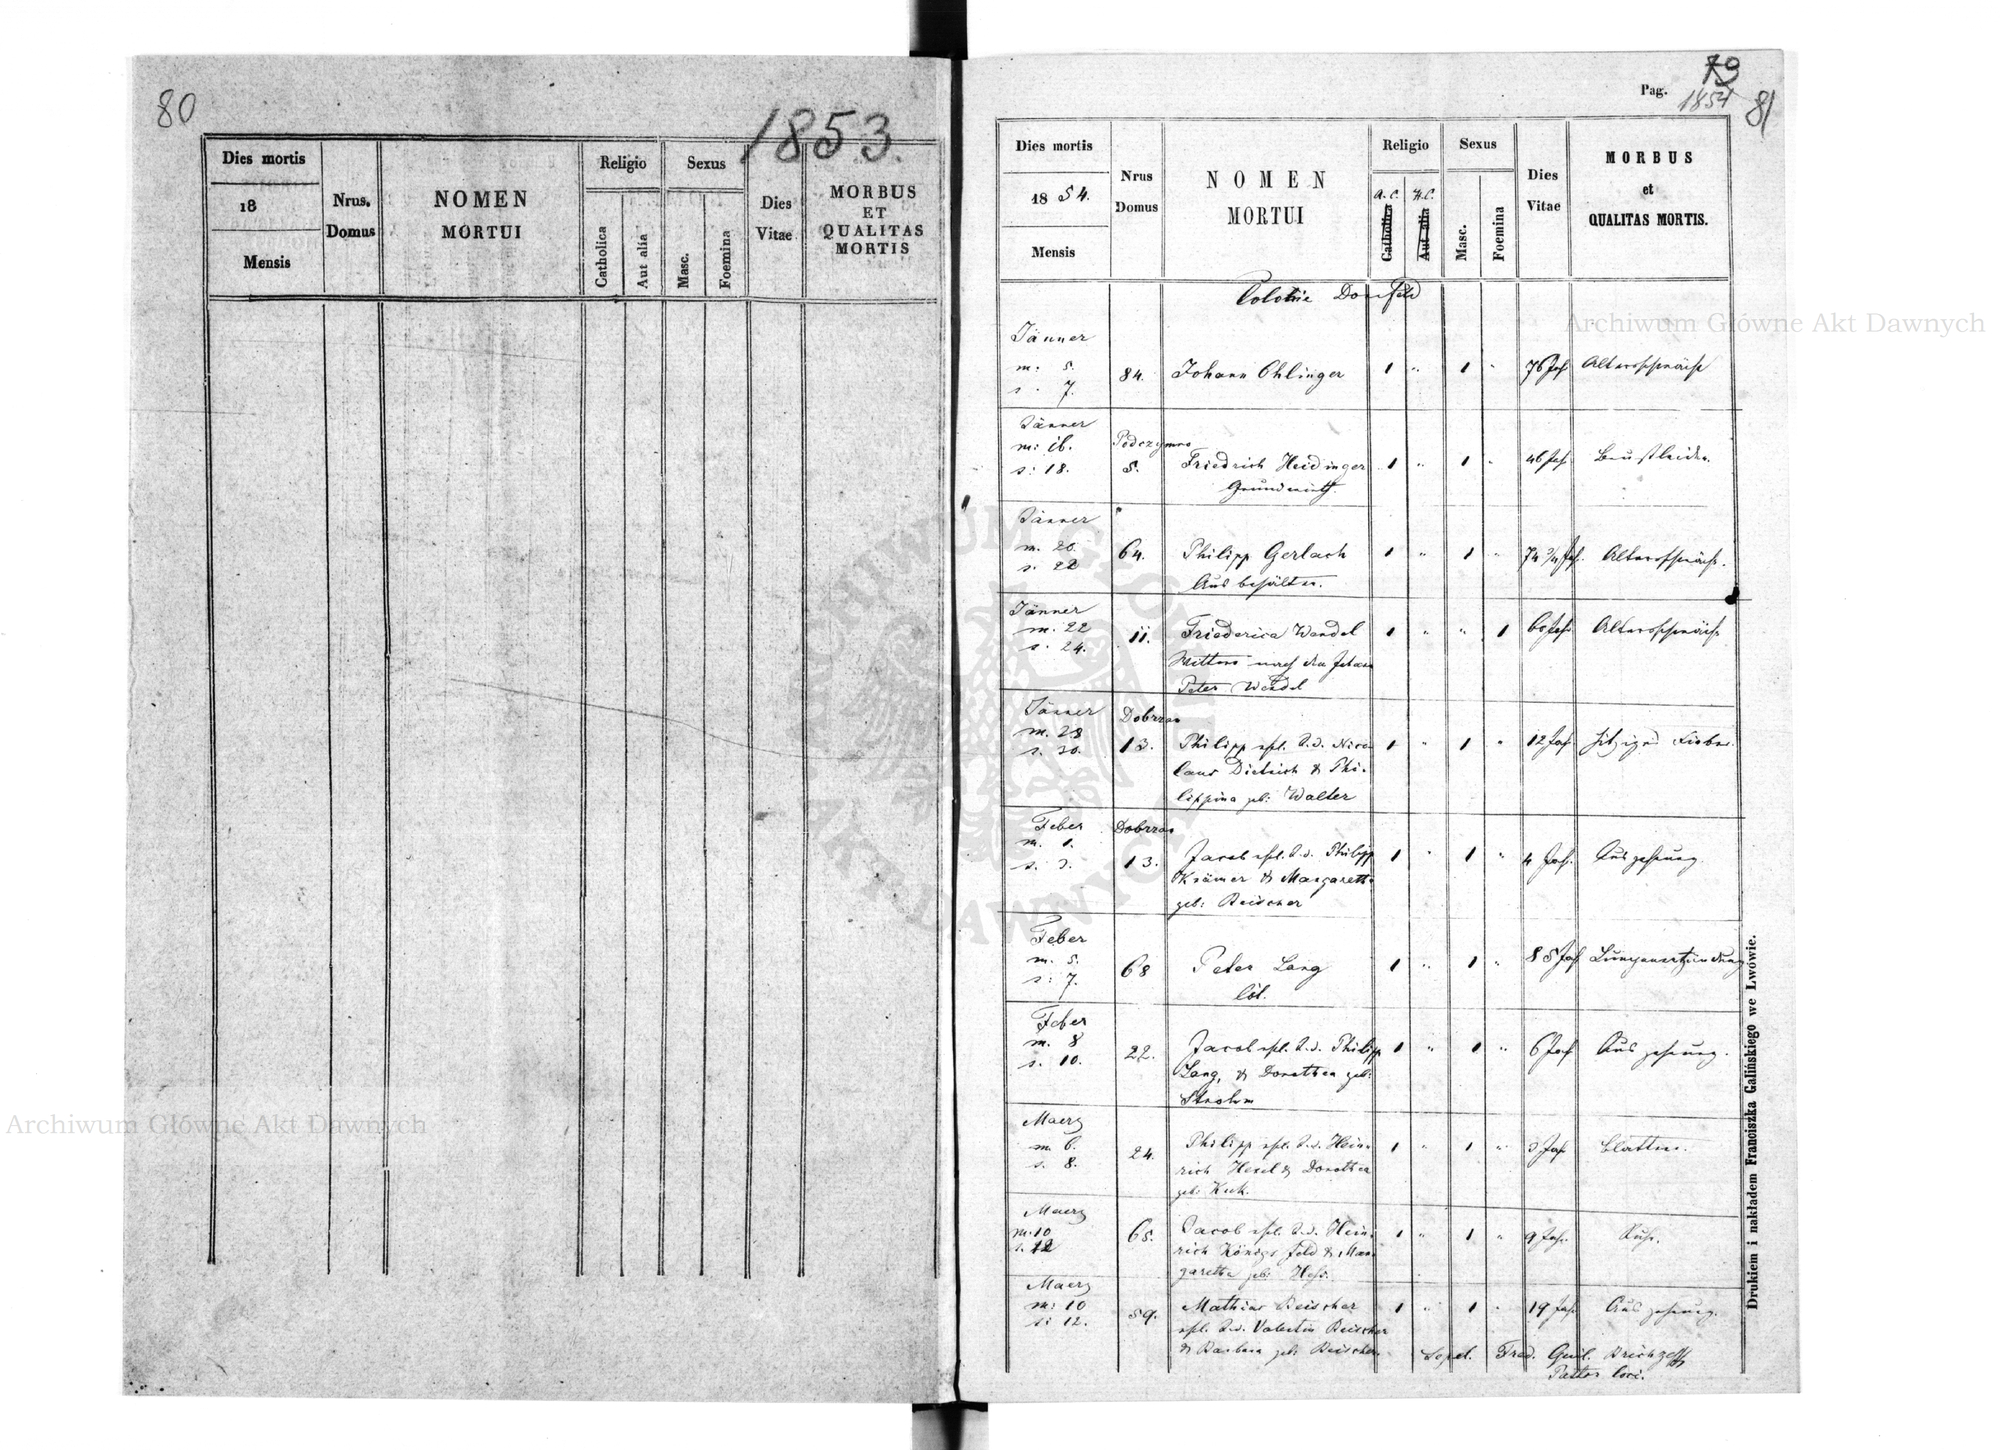 80
1853.
Dies mortis
18
Mensis
Nrus.
Domus
NOMEN
MORTUI
Religio
Catholica
Aut alia
Sexus
Masc.
Foemina
Dies
Vitae
MORBUS
ET
QUALITAS
MORTIS
Pag. 79
1854
81
Dies mortis
1854.
Mensis
Nrus
Domus
NOMEN
MORTUI
Religio
A. C.
H. C.
Catholica
Aut alia
Sexus
Masc.
Foemina
Dies
Vitae
MORBUS
et
QUALITAS MORTIS.
Colonie Dornfeld
Jänner
m: 5. 84. Johann Ohlinger 1 " 1 " 76 Jah Altersschwäche
s: 7.
Jänner
m: 16. Podczymna
s: 18. 5. Friedrich Heidinger 1 " 1 " 46 Jah. Brustleiden.
Grundwirth.
Jänner
m. 20. 64. Philipp Gerlach 1 " 1 " 74 3/4 Jah. Altersschwäche.
s. 22 Ausbehälter.
Jänner
m. 22 11. Friederica Wendel 1 " " 1 60 Jah. Altersschwäche
s. 24. Wittwe nach dem Johann
Peter Wendel
Jänner Dobrzan
m. 28
s. 30. 13. Philipp ehl. S. d. Nico- 1 " 1 " 12 Jah. hitziges Fieber.
laus Dietrich & Phi-
lippina geb: Walter
Feber Dobrzan
m. 1.
s. 3. 13. Jacob ehl. S. d. Philipp 1 " 1 " 4 Jah. Auszehrung.
Krämer & Margaretha
geb: Reischer
Feber
m. 5. 68 Peter Lang 1 " 1 " 85 Jah Lungenentzündung
s: 7. cöl.
Feber
m. 8 22. Jacob ehl. S. d. Philipp 1 " 1 " 6 Jah Auszehrung.
s. 10. Lang, & Dorothea geb:
Strohm
Maerz
m. 6. 24. Philipp ehl. S. d. Hein- 1 " 1 " 3 Jah Blattern.
s. 8. rich Hexel & Dorothea
geb:
Maerz
m. 10 65. Jacob ehl. S. d. Hein- 1 " 1 " 9 Jah. Ruhr.
s. 12 rich Königsfeld & Mar-
garetha geb: Hess.
Maerz
m: 10 59. Mathias Reischer 1 " 1 " 19 Jah. Auszehrung.
s: 12. ehl. S. d. Valentin Reischer
& Barbara geb: Reischer.
Sepel. Fred. Guil.
Pastor loci.
Drukiem i nakładem Franciszka Galińskiego we Lwowie.
Archiwum Główne Akt Dawnych
Archiwum Główne Akt Dawnych
ARCHIWUM GŁÓWNE AKT DAWNYCH